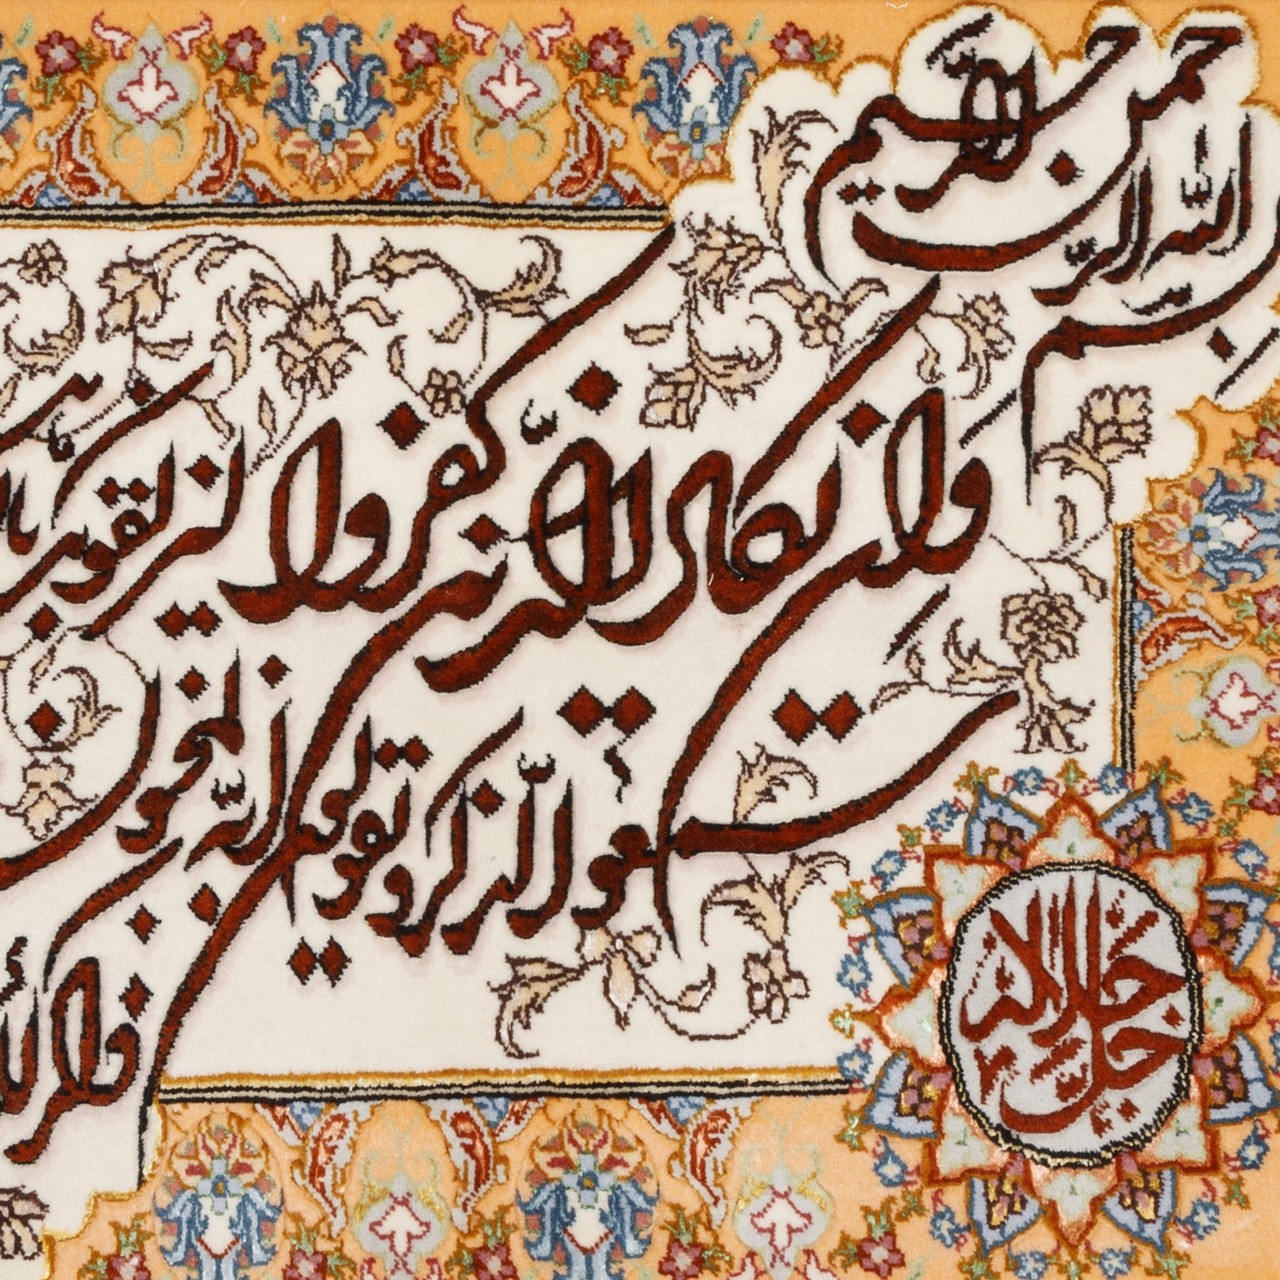 بسم الله الرحمن الرحیم
وان یکاد الذین کفروا لیزلقونک
سمعوا الذکر و یقولون انه لمجنون
ذکر
جل جلاله